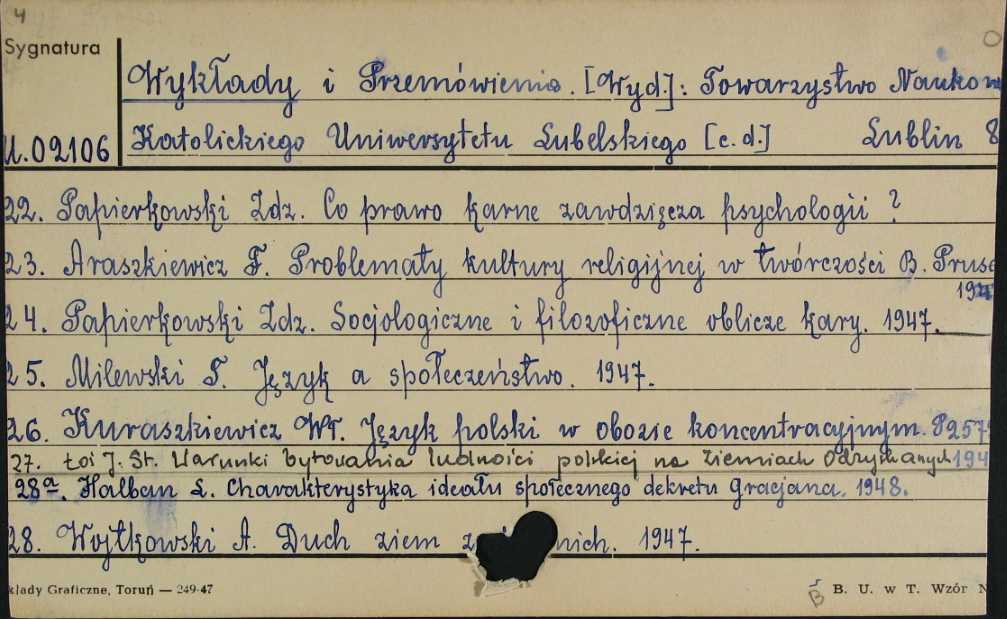 4
Sygnatura
Wykłady i Przemówienia. [Wyd.]: Towarzystwo Naukow
U.02106 Katolickiego Uniwersytetu Lubelskiego [c.d.] Lublin 8
22. Papierkowski Zdz. Co prawo karne zawdzięcza psychologii?
23. Araszkiewicz F. Problematy kultury religijnej w twórczości B. Prusa
194
24. Papierkowski Zdz. Socjologiczne i filozoficzne oblicze kary. 1947.
25. Milewski T. Język a społeczeństwo. 1947.
26. Kuraszkiewicz Wł. Język polski w obozie koncentracyjnym. P257
27. Łoś J. St. Warunki bytowania ludności polskiej na ziemiach odzyskanych 194
28a. Halban L. Charakterystyka ideału społecznego dekretu Gracjana. 1948.
28. Wojtkowski A. Duch ziem nich. 1947.
kłady Graficzne, Toruń — 249-47
B
B. U. w T. Wzór N